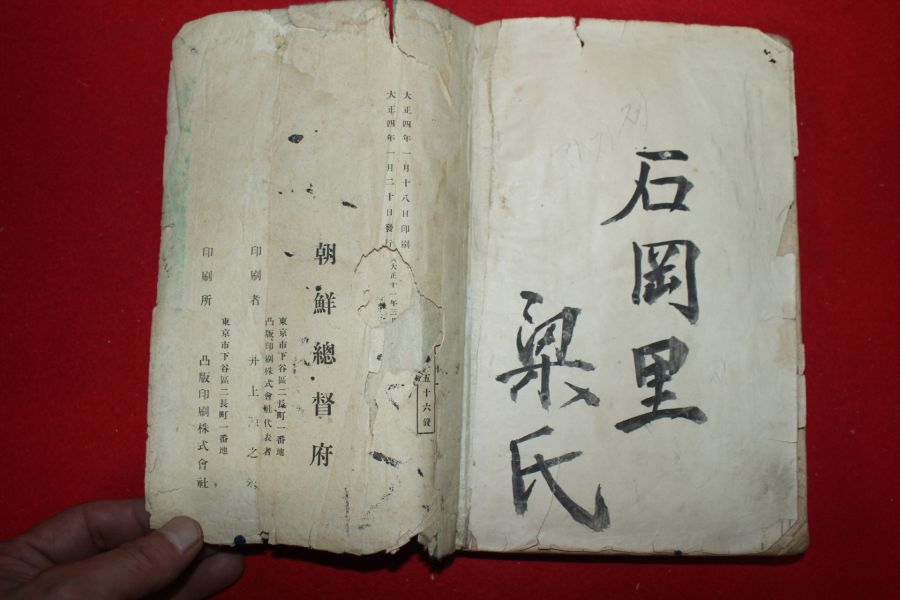 石岡里
梁氏
大正四年一月十八日印刷
大正四年一月二十日發行
大正十一年三月
五十六錢
朝鮮總督府
東京市下谷區二長町一番地
凸版印刷株式會社代表者
印刷者 井上 之
東京市下谷區二長町一番地
印刷所 凸版印刷株式會社